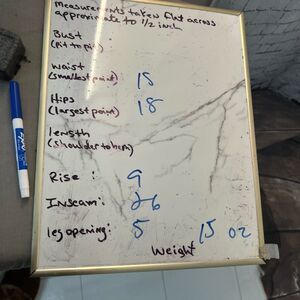 measurements taken flat across
approximate to 1/2 inch
Bust :
(Pit to pit)
waist :
(smallest point) 15
Hips :
(largest point) 18
length :
(shoulder to hem)
Rise : 9
Inseam : 26
leg opening : 5 15 oz
Weight
EXPO